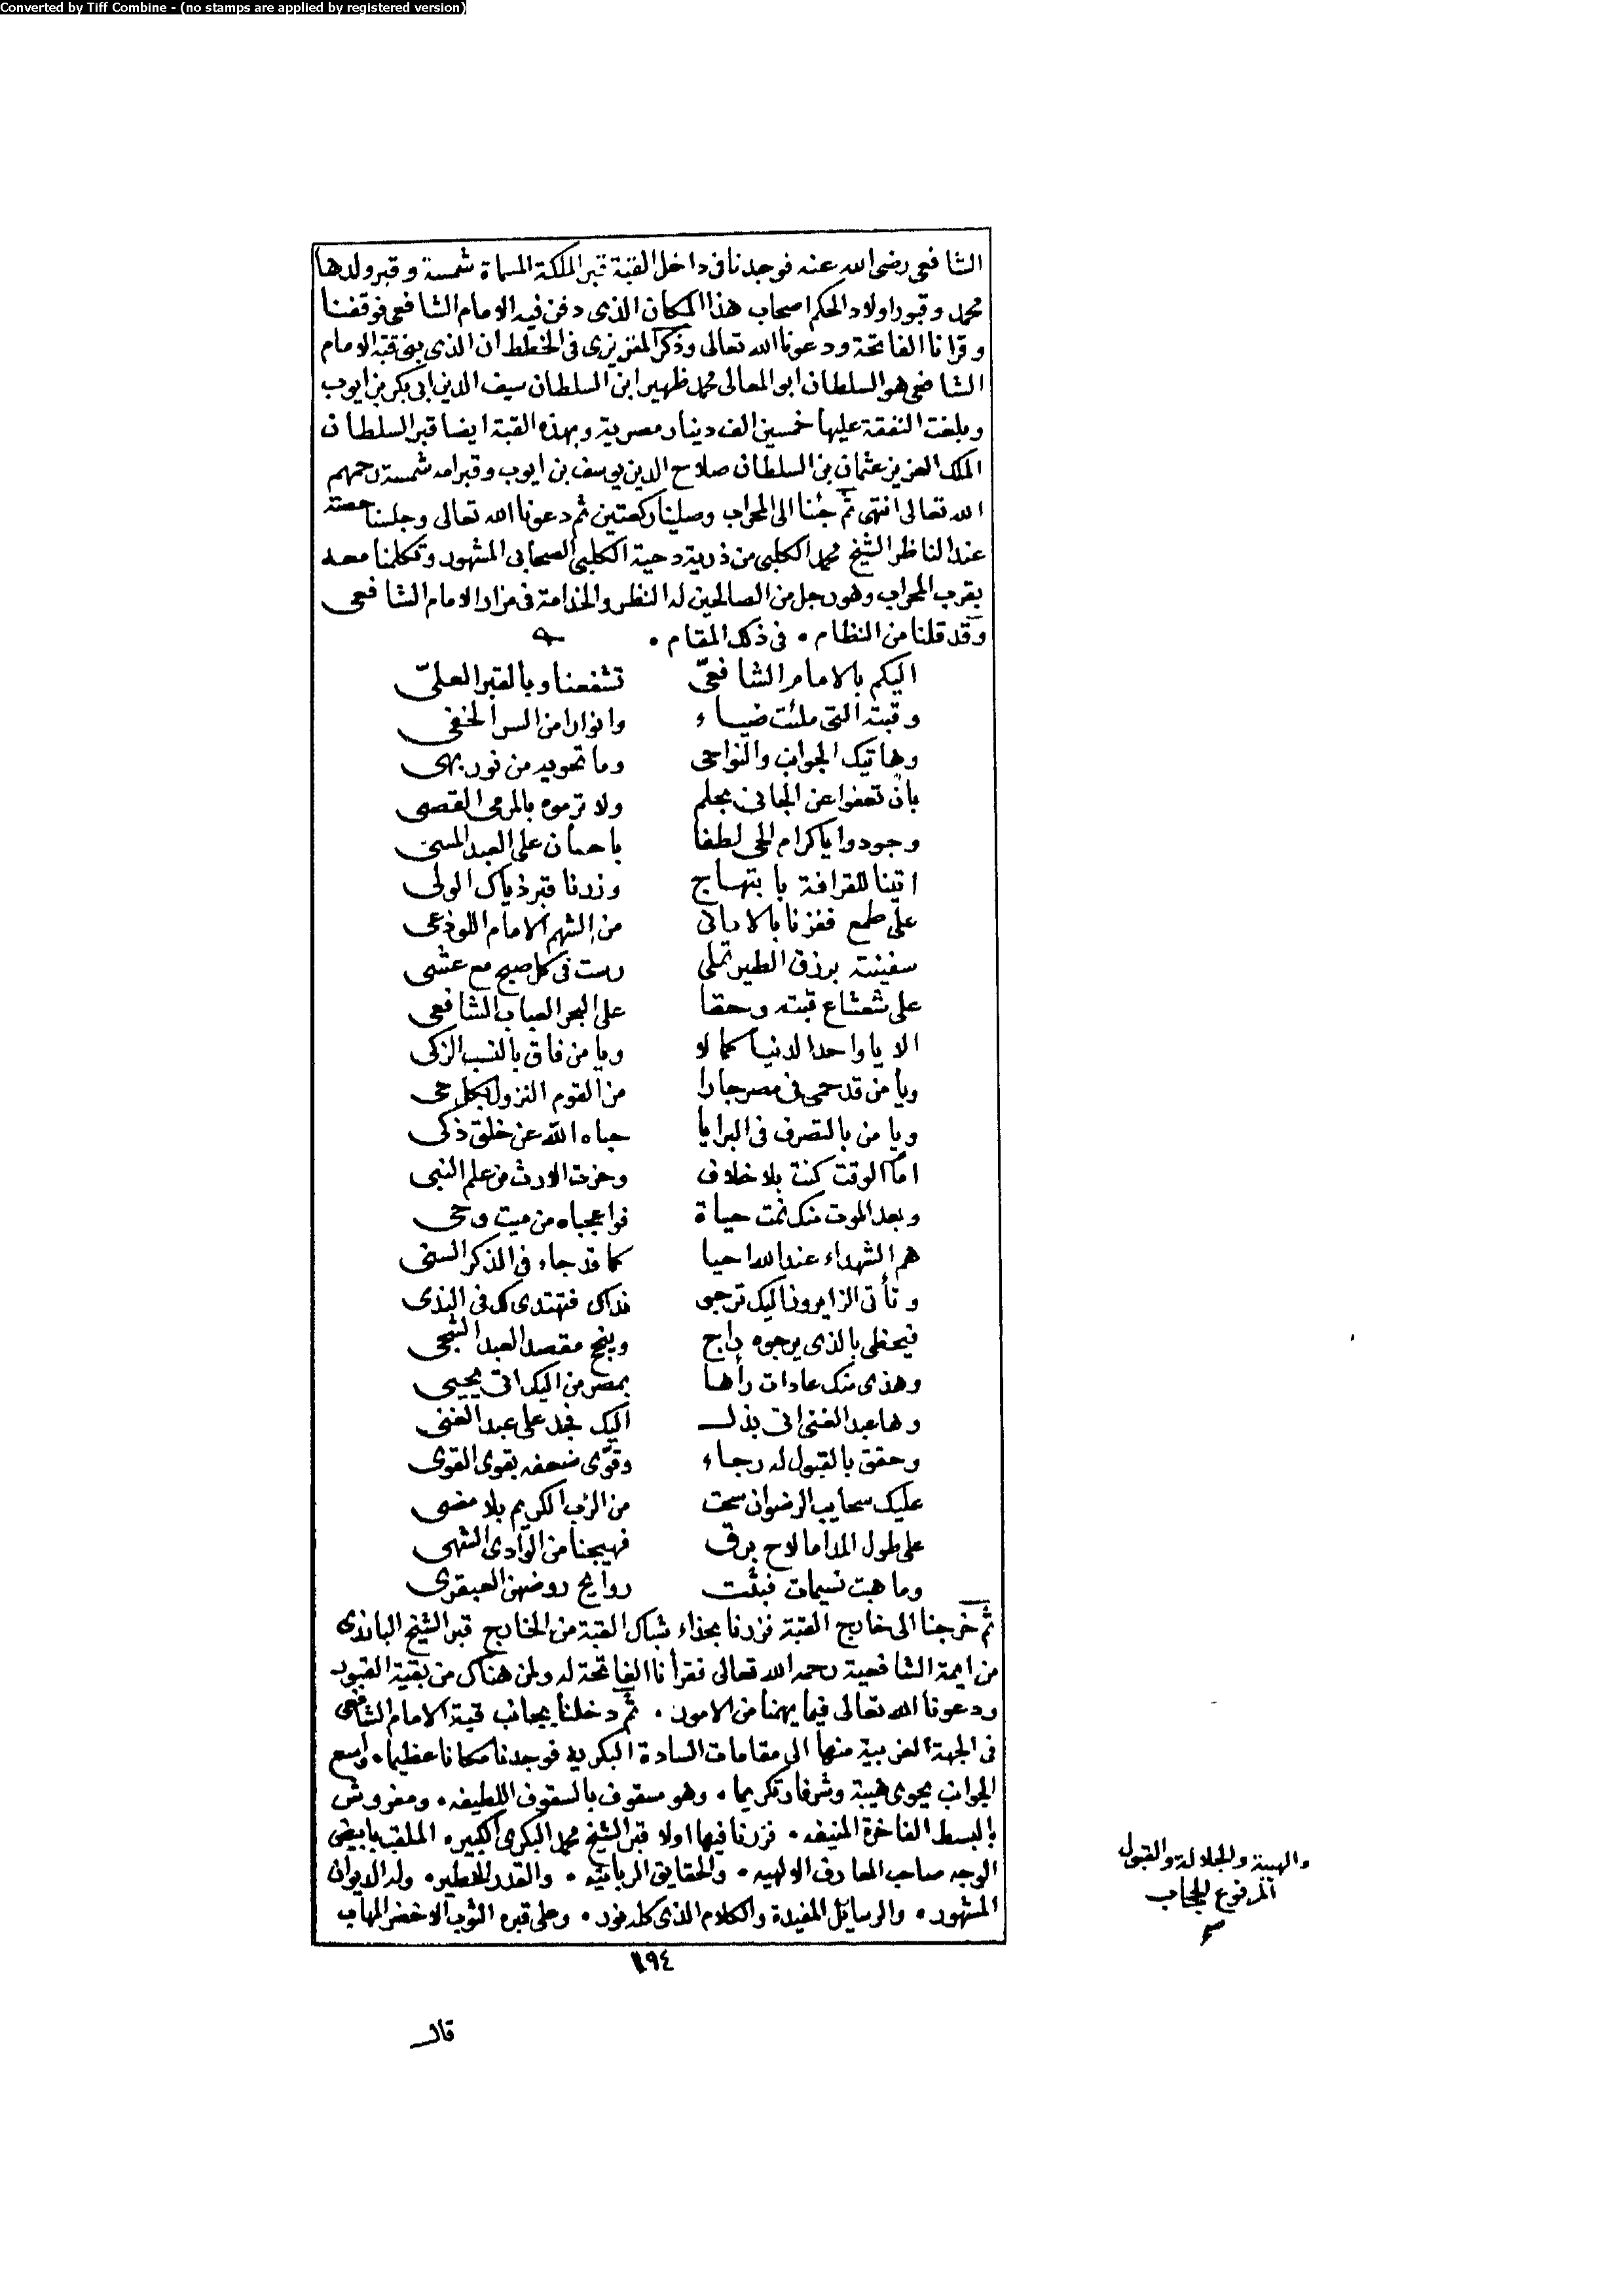 Converted by Tiff Combine - (no stamps are applied by registered version)
الشافعي رضي الله عنه فوجدنا في داخل القبة قبر الملكة المسماة شمسة وقبر ولدها
محمد وقبور اولاد الحكم اصحاب هذا المكان الذي دفن فيه الامام الشافعي فوقفنا
وقرانا الفاتحة ودعونا الله تعالى وذكر المقريزي في الخطط ان الذي بنى قبة الامام
الشافعي هو السلطان ابو المعالي محمد ظهير ابن السلطان سيف الدين ابي بكر بن ايوب
وبلغت النفقة عليها خمسين الف دينار مصرية وبهذه القبة ايضا قبر السلطان
الملك العزيز عثمان بن السلطان صلاح الدين يوسف بن ايوب وقبر امه شمسة رحمهم
الله تعالى انتهى ثم جئنا الى المحراب وصلينا ركعتين ثم دعونا الله تعالى وجلسنا حصة
عند الناظر الشيخ محمد الكلبي من ذرية دحية الكلبي الصحابي المشهور وتكلمنا معه
بقرب المحراب وهو رجل من الصالحين له النظر والخدامة في مزار الامام الشافعي
وقد قلنا من النظام ۰ في ذلك المقام ۰
اليكم بالامام الشافعيّ تشفعنا وبالقبر العليّ
وقبته التي ملئت ضياء وانوارا من السر الخفي
وهاتيك الجوانب والنواحي وما تحويه من نور بهي
بان تعفوا عن الجاني بحلم ولا ترموه بالمرمى القصي
وجودوا ياكرام الحي لطفا باحسان على العبد المسي
اتينا للقرافة بابتهاج وزرنا قبر ذياك الولي
على طمع ففزنا بالاماني من الشهم الامام اللوذعي
سفينته برزق الطير تملى رست في كل صبح مع عشي
على شعشاع قبته وحقا على البحر العباب الشافعي
الا يا واحد الدنيا كمالا ويا من فاق بالنسب الزكي
ويا من قد حمى في مصر جارا من القوم النزول بكل حي
ويا من بالتصرف في البرايا حباه الله عن خلق ذكي
امام الوقت كنت بلا خلاف وحزت الارث من علم النبي
وبعد الموت منك نمت حياة فواعجباه من ميت وحي
هم الشهداء عند الله احيا كما قد جاء في الذكر السني
وتأتي الزايرونا اليك ترجى نداك فتهتدي كل في الندي
فيحظى بالذي يرجوه راج وينجح مقصد العبد الشجي
وهذي منك عادات رأها بمصر من اليك اتى يحيي
وها عبد الغني اتى بذل اليك فجد على عبد الغني
وحقق بالقبول له رجاء وقوّى ضعفه بقوى القوي
عليك سحايب الرضوان سحت من الرب الكريم بلا مضي
على طول المدا ما لاح برق فهيجنا من الوادي الشهي
وما هبت نسيمات فبثت روايح روضهن العبقري
ثم خرجنا الى خارج القبة فزرنا بحذاء شباك القبة من الخارج قبر الشيخ
من ايمة الشافعية رحمه الله تعالى فقرأنا الفاتحة له ولمن هناك من بقية القبور
ودعونا الله تعالى فيما يهمنا من الامور ۰ ثم دخلنا بجانب قبة الامام الشافعي
في الجهة الغربية منها الى مقامات السادة البكرية فوجدنا مكانا عظيما ۰ واسع
الجوانب يحوي هيبة وشرفا وتكريما ۰ وهو مسقوف بالسقوف اللطيفه ۰ ومفروش
بالبسط الفاخرة المنيفه ۰ فزرنا فيها اولا قبر الشيخ محمد البكري الكبير ۰ الملقب بابيض
الوجه صاحب المعارف الالهيه ۰ والحقايق الربانيه ۰ والقدر الخطير ۰ وله الديوان
المشهور ۰ والرسايل المفيدة والكلام الذي كله نور ۰ وعلى قبره الثوب الاخضر المهاب
والهيبة والجلالة والقبول
المرفوع الحجاب
١٩٤
قال